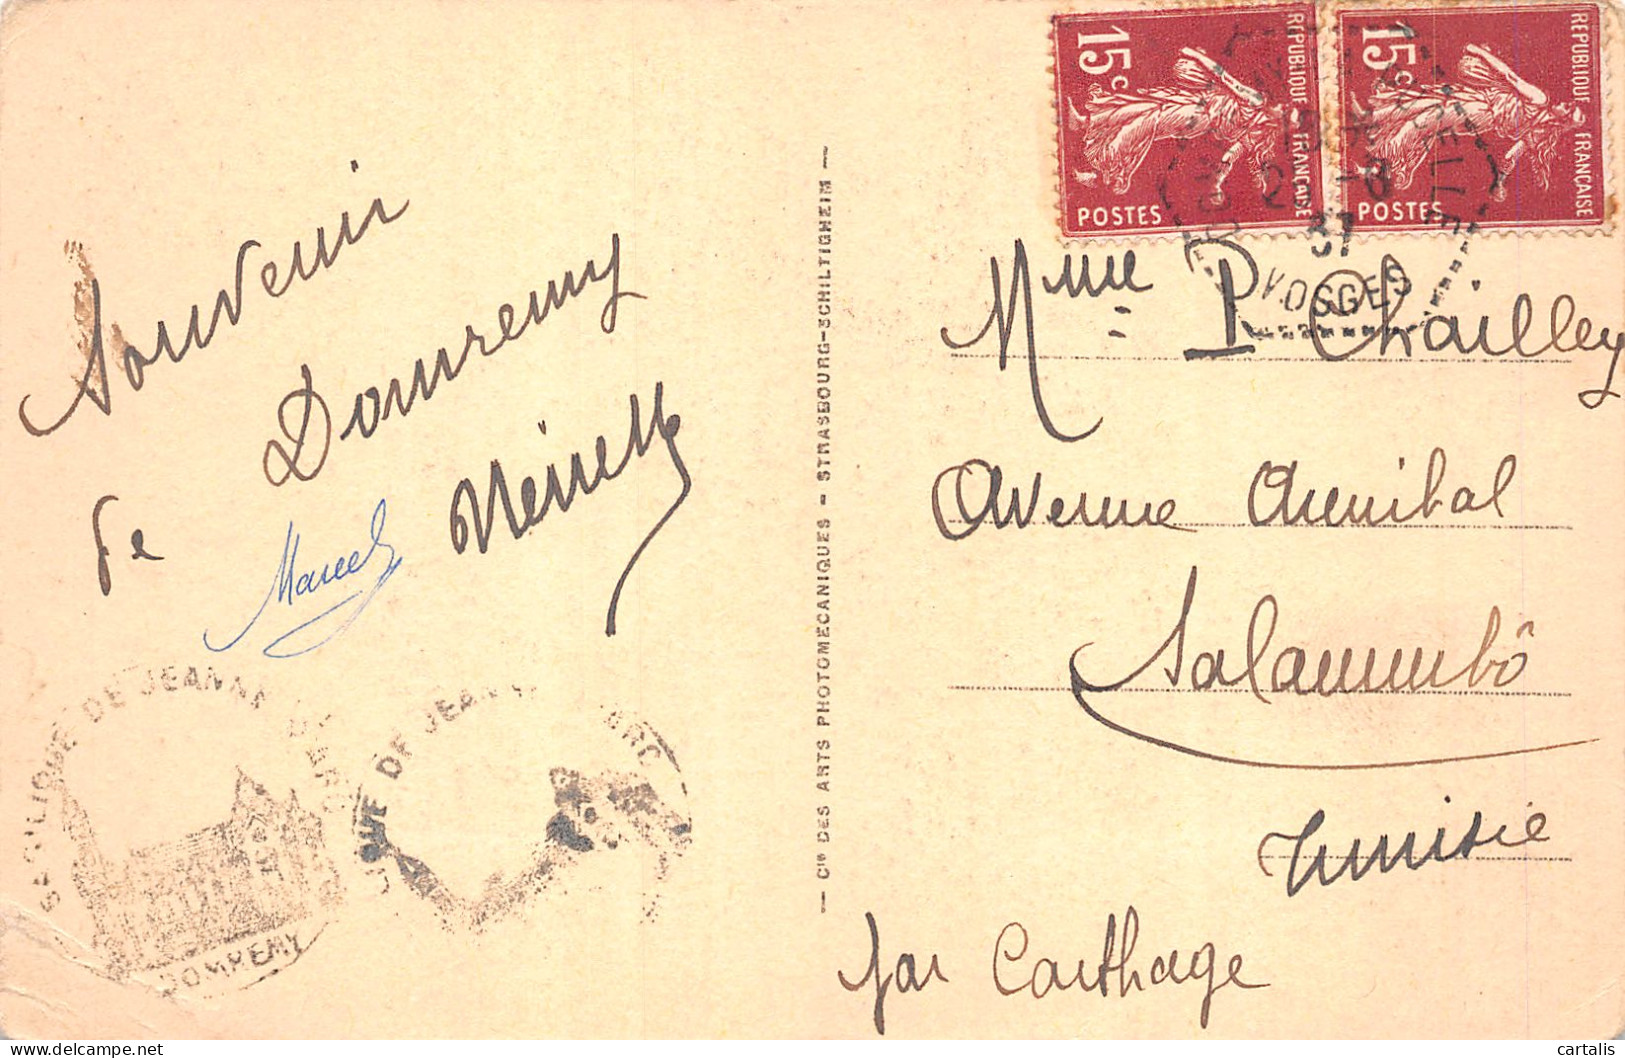 Souvenir
de Domremy
Marcel Mireille
BASILIQUE DE JEANNE D'ARC
DOMREMY
DE JEANNE ARC
— Cie DES ARTS PHOTOMÉCANIQUES - STRASBOURG-SCHILTIGHEIM —
REPUBLIQUE FRANÇAISE
15c
POSTES
REPUBLIQUE FRANÇAISE
15c
POSTES
37
VOSGES
Mme P. Chailley
Avenue Annibal
Salammbô
Tunisie
par Carthage
cartalis